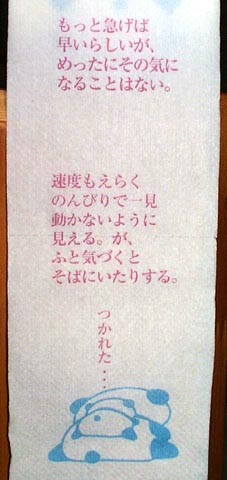 もっと急げば
早いらしいが、
めったにその気に
なることはない。
速度もえらく
のんびりで一見
動かないように
見える。が、
ふと気づくと
そばにいたりする。
つかれた・・・